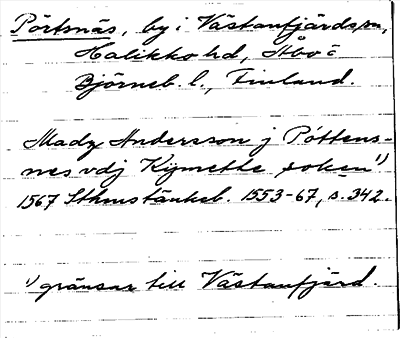 Pörtsnäs, by i Västanfjärds sn,
Halikko hd, Åbo o
Björneb. l., Finland.
Madz Andersson j Pöttens-
nes vdj Kijmette soken 1)
1567 Sthms tänkeb. 1553-67, s. 342.
1) gränsar till Västanfjärd.